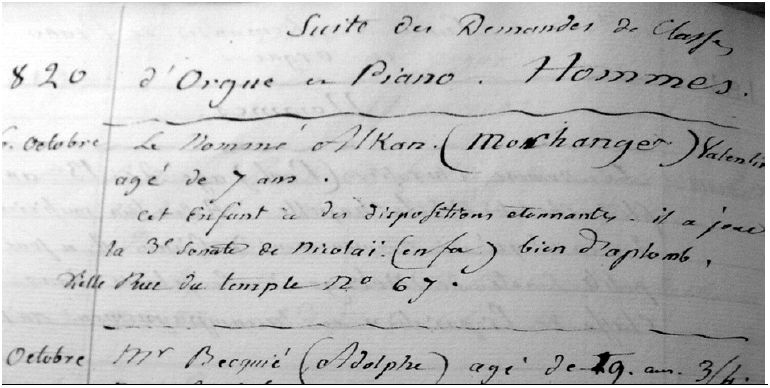 Suite des Demandes de Classes
820 d'Orgue et Piano. Hommes.
6. Octobre Le Nommé Alkan. (Morchange) Valentin
agé de 7 ans
cet Enfant a des dispositions etonnantes. il a joué
la 3e Sonate de Nicolaï. (en fa) bien d'aplomb.
Vielle Rue du temple No 67.
Octobre Mr Becquié (Adolphe) agé de 19. ans. 3/4.